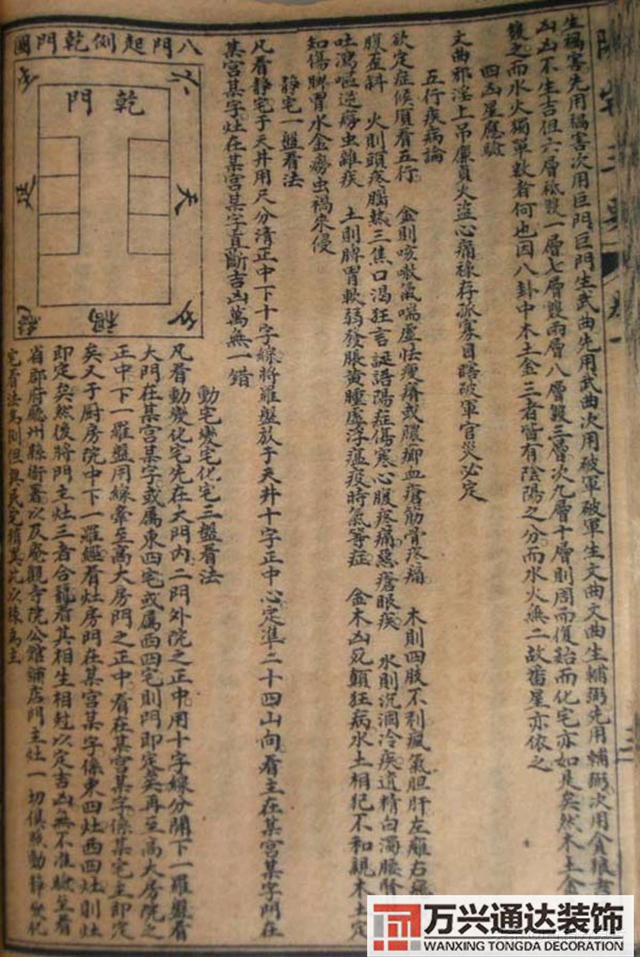 生禍害先用禍害次用巨門巨門生武曲先用武曲次用破軍破軍生文曲文曲生輔弼先用輔弼次用貪狼
凶凶不生吉但六層
一層七層
兩層八層
三層次九層十層則周而復始而化宅亦如是矣然木土金
復之而水火獨單數者何也因八卦中木土金三者皆有陰陽之分而水火無二故番星亦依之
四凶星應驗
文曲邪淫上吊廉貞火盜心痛祿存孤寡目
破軍官災必定
五行疾病論
欲定症候須看五行 金則咳嗽氣喘虛怯瘦
或膿
血瘡筋骨疼痛 木則四肢不利瘋氣胆肝左癱右瘓
火則頭疼腦熱三焦口渴狂言
語陽症傷寒心腹疼痛惡瘡眼疾 水則沉涸冷疾遺精白濁腰腎
吐瀉嘔逆
虫雜疾 土則脾胃軟弱發脹黃腫虛浮瘟疫時氣等症 金木凶死顛狂病水土相犯不和親木土定
知傷脾胃水金癆虫禍來侵
靜宅一盤看法
凡看靜宅于天井用尺分清正中下十字線將羅盤放于天井十字正中心定準二十四山向看主在某宮某字門在
某宮某字灶在某宮某字直斷吉凶萬無一錯
動宅變宅化宅三盤看法
凡看動變化宅先在大門內二門外院之正中用十字線分開下一羅盤看
大門在某宮某字或属東四宅或属西四宅則門即定矣再至高大房院之
正中下一羅盤用線牽至高大房門之正中看在某宮某字係某宅主即定
矣又于厨房院中下一羅經看灶房門在某宮某字係東四灶西四灶則灶
即定矣然後將門主灶三者合
看其相生相尅以定吉凶無不准
至看
省郡府廳州縣衙署以及庵觀寺院公館鋪店門主灶一切俱
動靜變化
宅看法為
但與民宅
八門起例乾門圖
乾門
六
天
五
禍
絕
延
生
萬兴通达装饰
WANXING TONGDA DECORATION